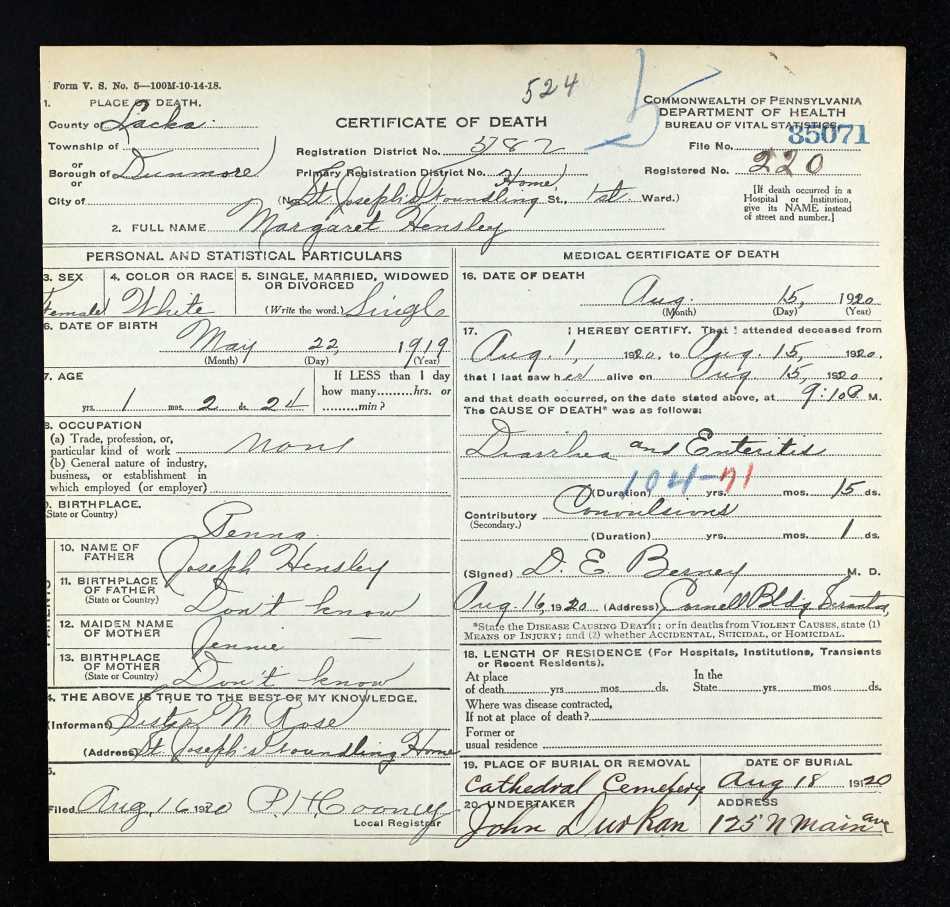 Form V. S. No. 5—100M-10-14-18.
524
5
1. PLACE OF DEATH.
County of Lacka.
Township of
or
Borough of Dunmore
or
City of
CERTIFICATE OF DEATH
Registration District No. 5782
Primary Registration District No.
(No. St. Joseph's Foundling Home, St., 1st. Ward.)
COMMONWEALTH OF PENNSYLVANIA
DEPARTMENT OF HEALTH
BUREAU OF VITAL STATISTICS
File No. 35071
Registered No. 220
[If death occurred in a
Hospital or Institution,
give its NAME instead
of street and number.]
2. FULL NAME Margaret Hensley
PERSONAL AND STATISTICAL PARTICULARS
3. SEX
Female
4. COLOR OR RACE
White
5. SINGLE, MARRIED, WIDOWED
OR DIVORCED
(Write the word.) Single
6. DATE OF BIRTH
May 22, 1919
(Month) (Day) (Year)
7. AGE
yrs. 1 mos. 2 ds. 24
If LESS than 1 day
how many.........hrs. or
.........min?
8. OCCUPATION
(a) Trade, profession, or,
particular kind of work none
(b) General nature of industry,
business, or establishment in
which employed (or employer)
9. BIRTHPLACE.
(State or Country)
Penna.
PARENTS
10. NAME OF
FATHER
Joseph Hensley
11. BIRTHPLACE
OF FATHER
(State or Country)
Don't know
12. MAIDEN NAME
OF MOTHER
Jennie —
13. BIRTHPLACE
OF MOTHER
(State or Country)
Don't know
14. THE ABOVE IS TRUE TO THE BEST OF MY KNOWLEDGE.
(Informant) Sister M. Rose
(Address) St. Joseph's Foundling Home
5.
Filed Aug. 16 1920 P. H. Cooney
Local Registrar
MEDICAL CERTIFICATE OF DEATH
16. DATE OF DEATH
Aug. 15, 1920
(Month) (Day) (Year)
17. I HEREBY CERTIFY. That I attended deceased from
Aug. 1, 1920, to Aug. 15, 1920.
that I last saw her alive on Aug. 15, 1920
and that death occurred, on the date stated above, at 9:10 P. M.
The CAUSE OF DEATH* was as follows:
Diarrhea and Enteritis
104-71
(Duration) yrs. mos. 15 ds.
Contributory Convulsions
(Secondary.)
(Duration) yrs. mos. 1 ds.
(Signed) D. E. Berney M. D.
Aug. 16, 1920 (Address) Connell Bldg Scranton
*State the DISEASE CAUSING DEATH; or in deaths from VIOLENT CAUSES, state (1)
MEANS OF INJURY; and (2) whether ACCIDENTAL, SUICIDAL, or HOMICIDAL.
18. LENGTH OF RESIDENCE (For Hospitals, Institutions, Transients
or Recent Residents).
At place
of death yrs mos. ds.
In the
State yrs. mos ds.
Where was disease contracted,
If not at place of death?
Former or
usual residence
19. PLACE OF BURIAL OR REMOVAL
Cathedral Cemetery
DATE OF BURIAL
Aug 18 1920
20. UNDERTAKER
John Durkan
ADDRESS
125 N Main ave